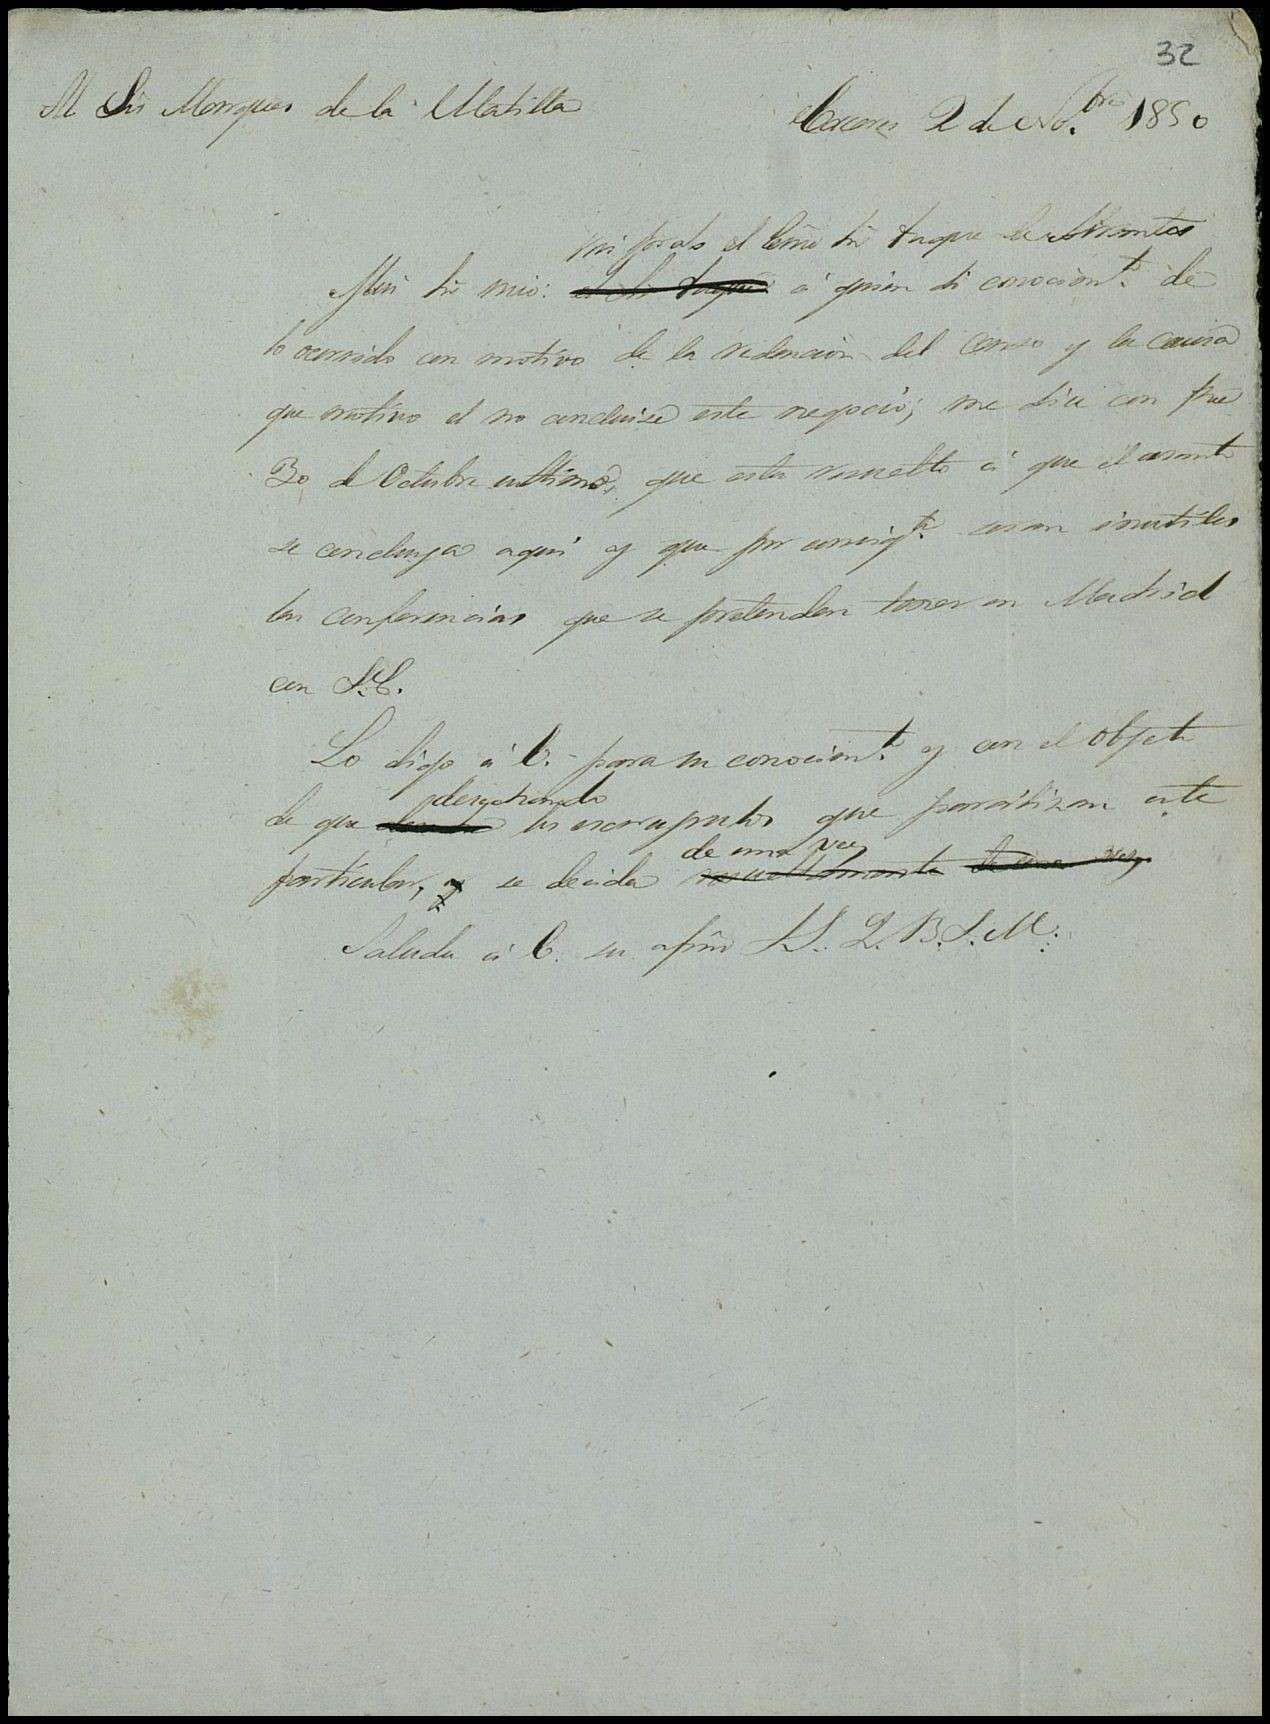 32
Sr Marques de la Matilla
Caceres 2 de Nov.bre 1850
el Señor Duque de Abrantes
Mui Sr mio: el Sr Duque á quien di conocim.to de
lo ocurrido con motivo de la redencion del censo y la causa
que motivo el no concluirse este negocio, me dice con fecha
30 de Octubre ultimo, que esta resuelto á que el asunto
se concluya aqui y que por consig.te sean inutiles
las conferencias que se pretenden tener en Madrid
con S.E.
Lo digo á V. para su conocim.to y con el objeto
de que los escrupulos que paralizan este
de una vez
particular, se decida resueltamente de una vez
Saluda á V. su afmo S.S. Q.B.S.M.